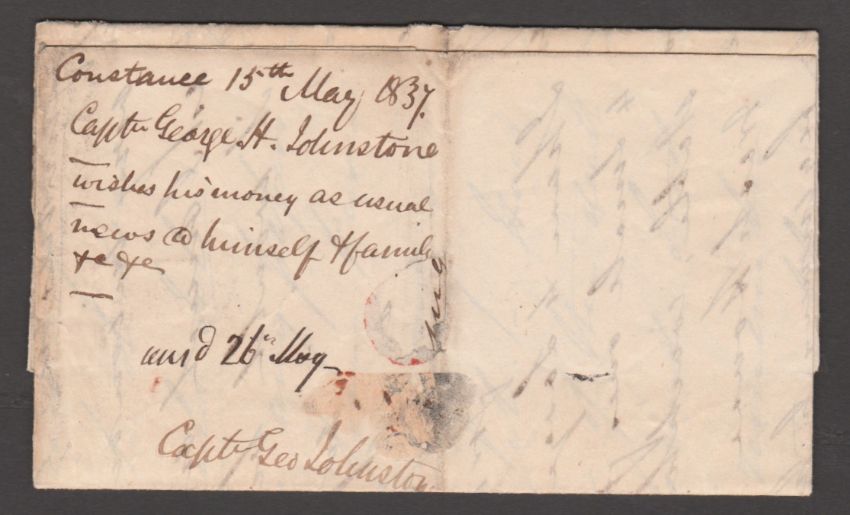 Constance 15th May 1837.
Captn George H. Johnstone
wishes his money as usual
news @ himself & family
&c &c
ansd 26th May
Captn Geo Johnston